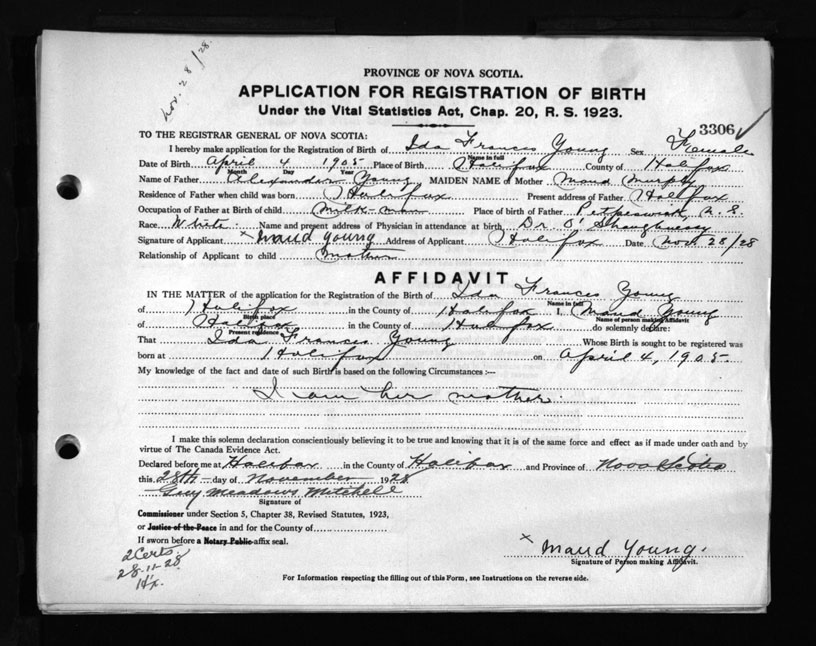 Nov. 28/28.
PROVINCE OF NOVA SCOTIA.
APPLICATION FOR REGISTRATION OF BIRTH
Under the Vital Statistics Act, Chap. 20, R. S. 1923.
3306
TO THE REGISTRAR GENERAL OF NOVA SCOTIA:
I hereby make application for the Registration of Birth of Ida Frances Young Sex Female
Name in full
Date of Birth April 4 1905 Place of Birth Halifax County of Halifax
Month Day Year
Name of Father Alexander Young MAIDEN NAME of Mother Maud Murphy
Residence of Father when child was born Halifax Present address of Father Halifax
Occupation of Father at Birth of child Milk-man Place of birth of Father Petpeswick, N. S.
Race White Name and present address of Physician in attendance at birth Dr. O'Shaughnessy
Signature of Applicant x Maud Young Address of Applicant Halifax Date Nov. 28/28
Relationship of Applicant to child mother
AFFIDAVIT
IN THE MATTER of the application for the Registration of the Birth of Ida Frances Young
Name in full
of Halifax in the County of Halifax I, Maud Young
Birth place Name of person making Affidavit
of Halifax in the County of Halifax do solemnly declare:
Present residence
That Ida Frances Young Whose Birth is sought to be registered was
born at Halifax on April 4, 1905.
My knowledge of the fact and date of such Birth is based on the following Circumstances:—
I am her mother.
I make this solemn declaration conscientiously believing it to be true and knowing that it is of the same force and effect as if made under oath and by
virtue of The Canada Evidence Act.
Declared before me at Halifax in the County of Halifax and Province of Nova Scotia
this 28th day of November 1928
Guy Meadows Mitchell
Signature of
Commissioner under Section 5, Chapter 38, Revised Statutes, 1923,
or Justice of the Peace in and for the County of
If sworn before a Notary Public affix seal.
2 Certs.
28-11-28
Hx.
x Maud Young.
Signature of Person making Affidavit.
For Information respecting the filling out of this Form, see Instructions on the reverse side.